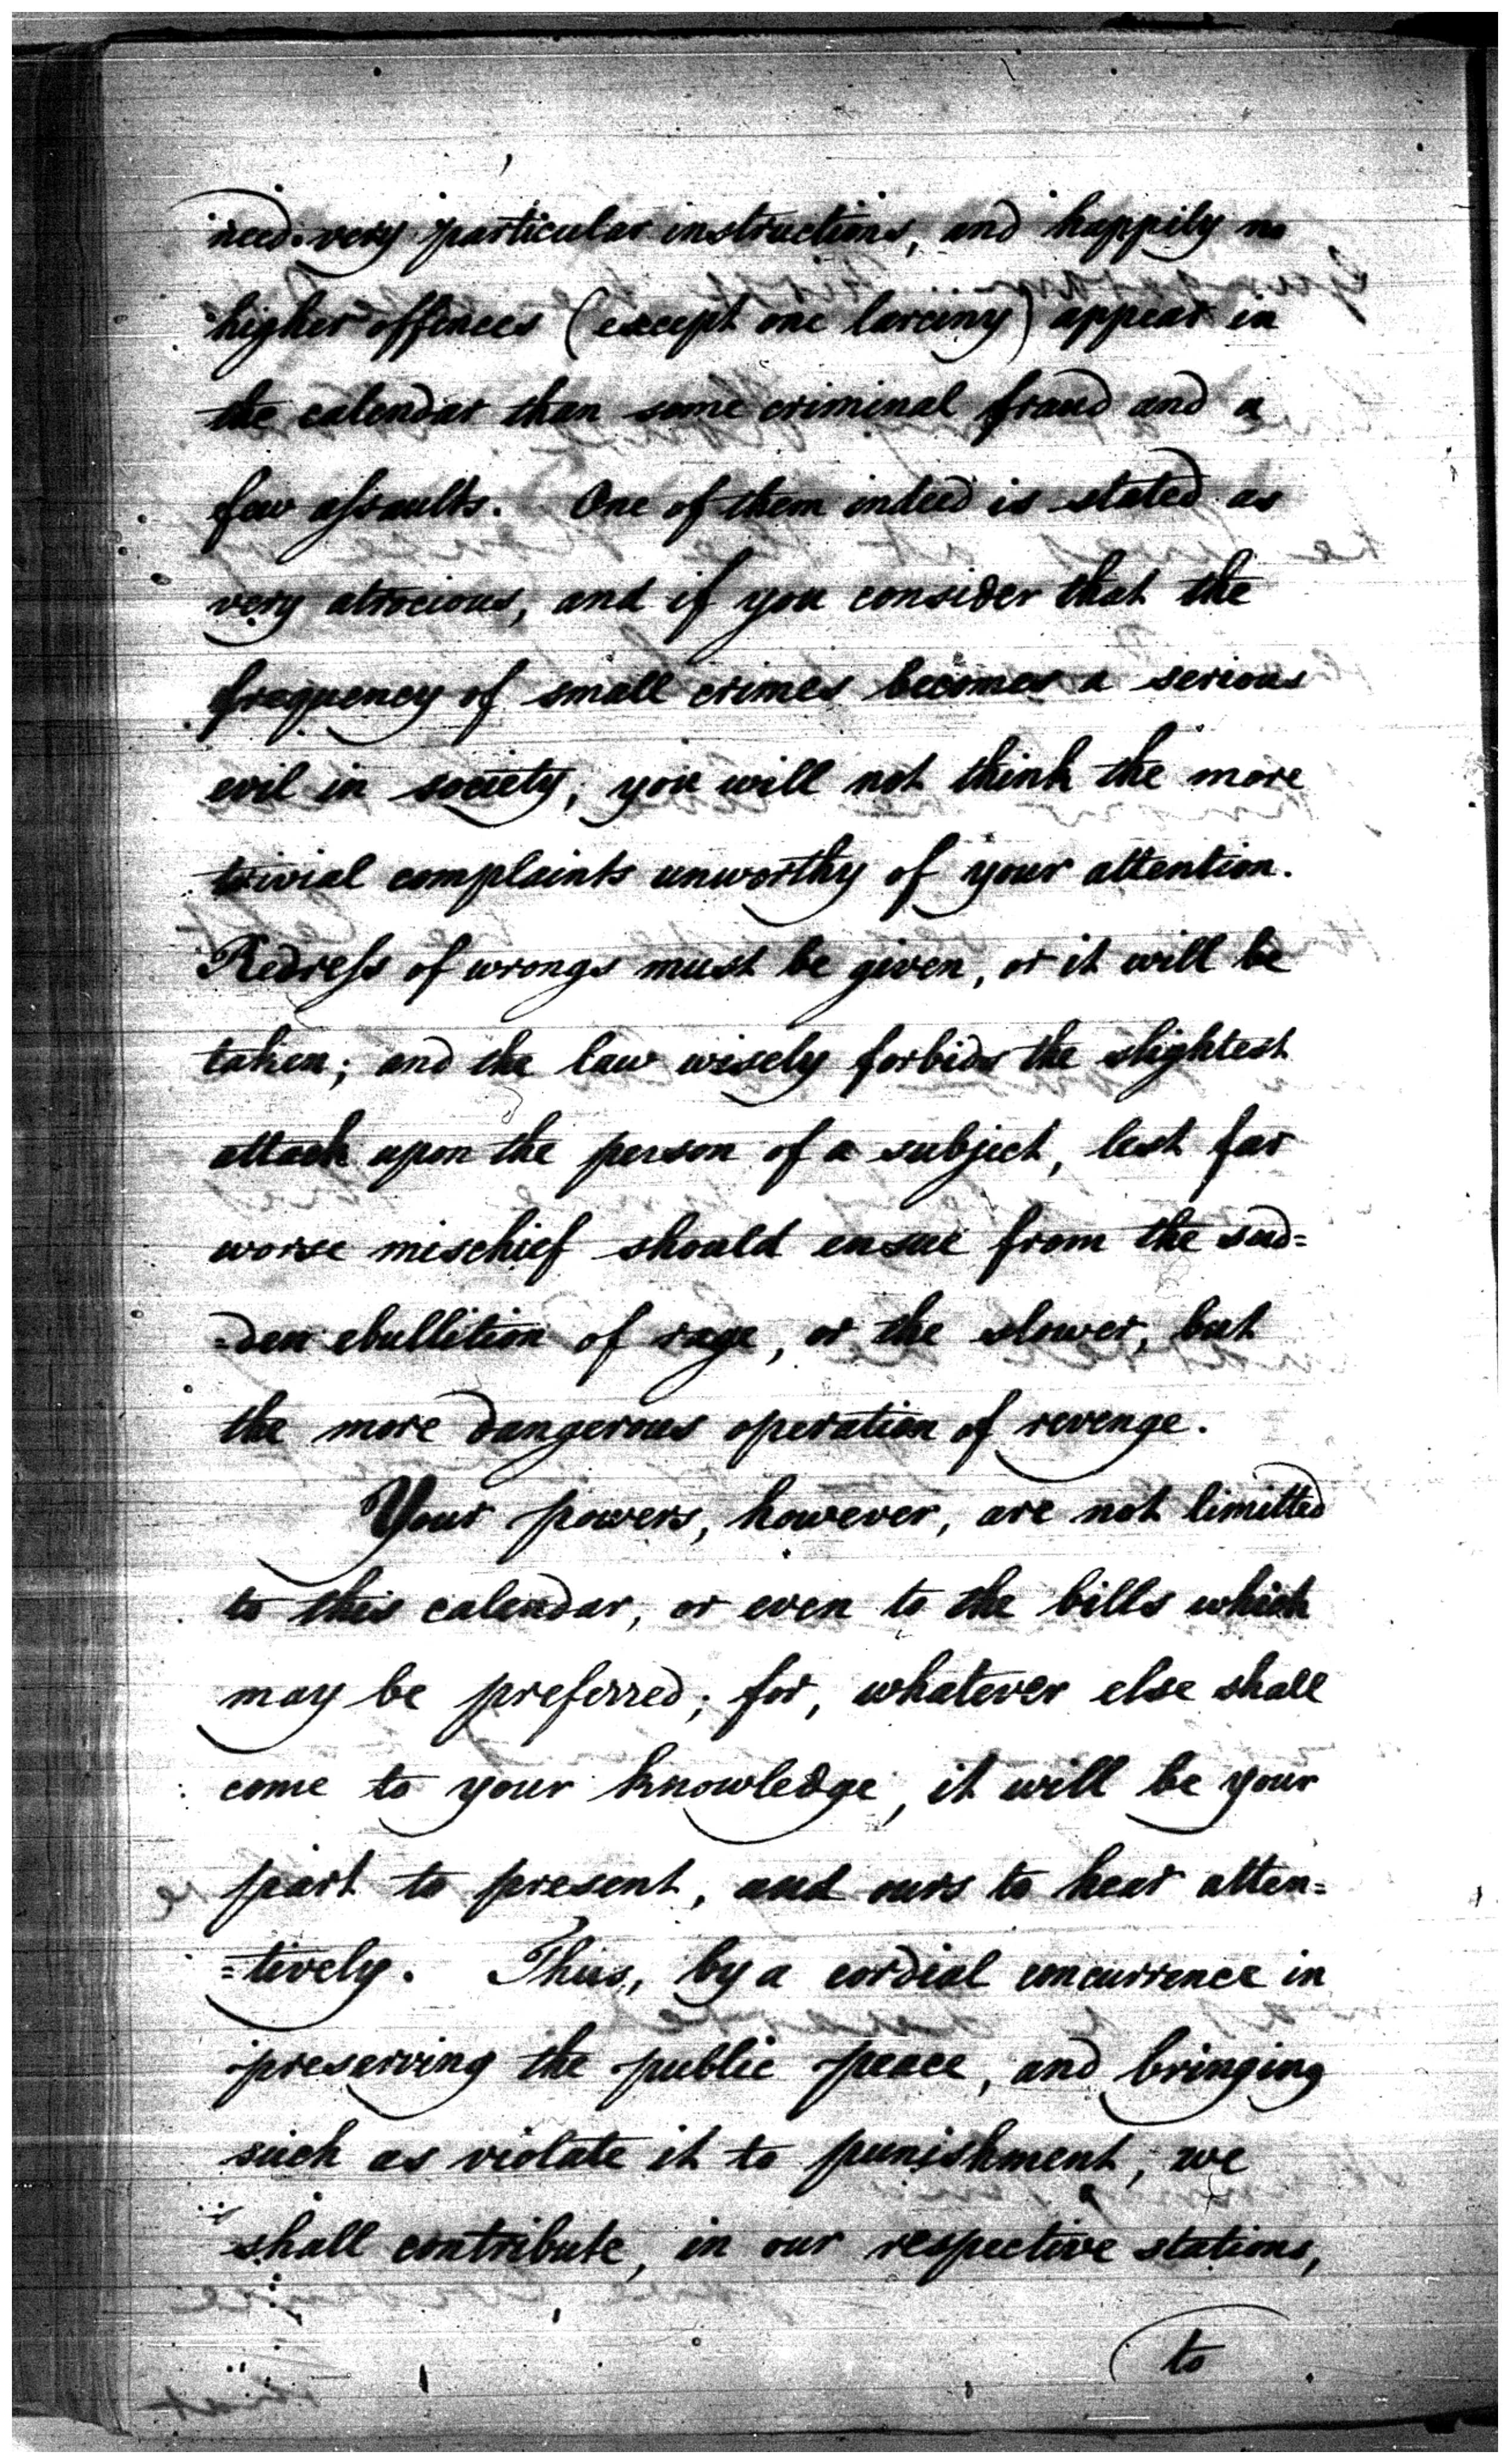 need very particular instructions, and happily no
higher offences (except one larceny) appear in
the calendar than some criminal fraud and a
few assaults. One of them indeed is stated as
very atrocious, and if you consider that the
frequency of small crimes becomes a serious
evil in society, you will not think the more
trivial complaints unworthy of your attention.
Redress of wrongs must be given, or it will be
taken; and the law wisely forbids the slightest
attack upon the person of a subject, lest far
worse mischief should ensue from the sud=
=den ebullition of rage, or the slower, but
the more dangerous operation of revenge.
Your powers, however, are not limitted
to this calendar, or even to the bills which
may be preferred; for, whatever else shall
come to your knowledge, it will be your
part to present, and ours to hear atten=
=tively. Thus, by a cordial concurrence in
preserving the public peace, and bringing
such as violate it to punishment, we
shall contribute, in our respective stations,
to